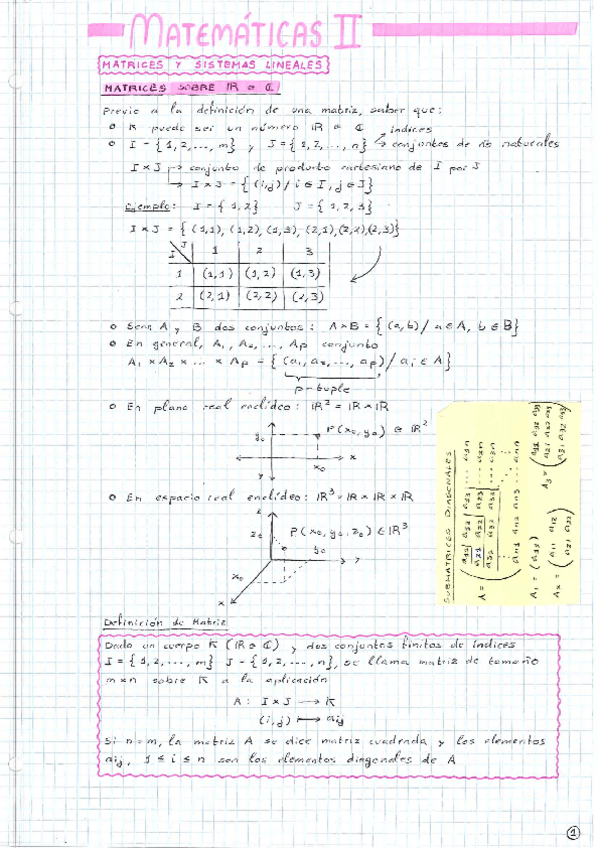 MATEMÁTICAS II
MATRICES Y SISTEMAS LINEALES
MATRICES SOBRE ℝ o ℂ
Previo a la definición de una matriz, saber que:
o K puede ser un número ℝ o ℂ
índices
o I = {1, 2, ..., m} y J = {1, 2, ..., n} → conjuntos de nº naturales
I × J → conjunto de producto cartesiano de I por J
→ I × J = {(i,j) / i ∈ I, j ∈ J}
Ejemplo: I = {1, 2} J = {1, 2, 3}
I × J = {(1,1), (1,2), (1,3), (2,1), (2,2), (2,3)}
I J 1 2 3
1 (1,1) (1,2) (1,3)
2 (2,1) (2,2) (2,3)
o Sean A y B dos conjuntos: A × B = {(a,b) / a ∈ A, b ∈ B}
o En general, A₁, A₂, ..., Ap conjunto
A₁ × A₂ × ... × Ap = {(a₁, a₂, ..., ap) / aᵢ ∈ A}
p-tuple
o En plano real euclídeo: ℝ² = ℝ × ℝ
y₀ P(x₀, y₀) ∈ ℝ²
x₀ x
y
o En espacio real euclídeo: ℝ³ = ℝ × ℝ × ℝ
z
z₀ P(x₀, y₀, z₀) ∈ ℝ³
y₀
x₀
x
SUBMATRICES DIAGONALES
A =
A₁ = (a₁₁)
A₂ = (a₁₁ a₁₂
a₂₁ a₂₂)
A₃ = (a₁₁ a₁₂ a₁₃
a₂₁ a₂₂ a₂₃
a₃₁ a₃₂ a₃₃)
Definición de Matriz
Dado un cuerpo K (ℝ o ℂ) y dos conjuntos finitos de índices
I = {1, 2, ..., m} J = {1, 2, ..., n}, se llama matriz de tamaño
m×n sobre K a la aplicación
A: I × J → K
(i,j) ↦ aij
Si n = m, la matriz A se dice matriz cuadrada y los elementos
aij, 1 ≤ i ≤ n son los elementos diagonales de A
1